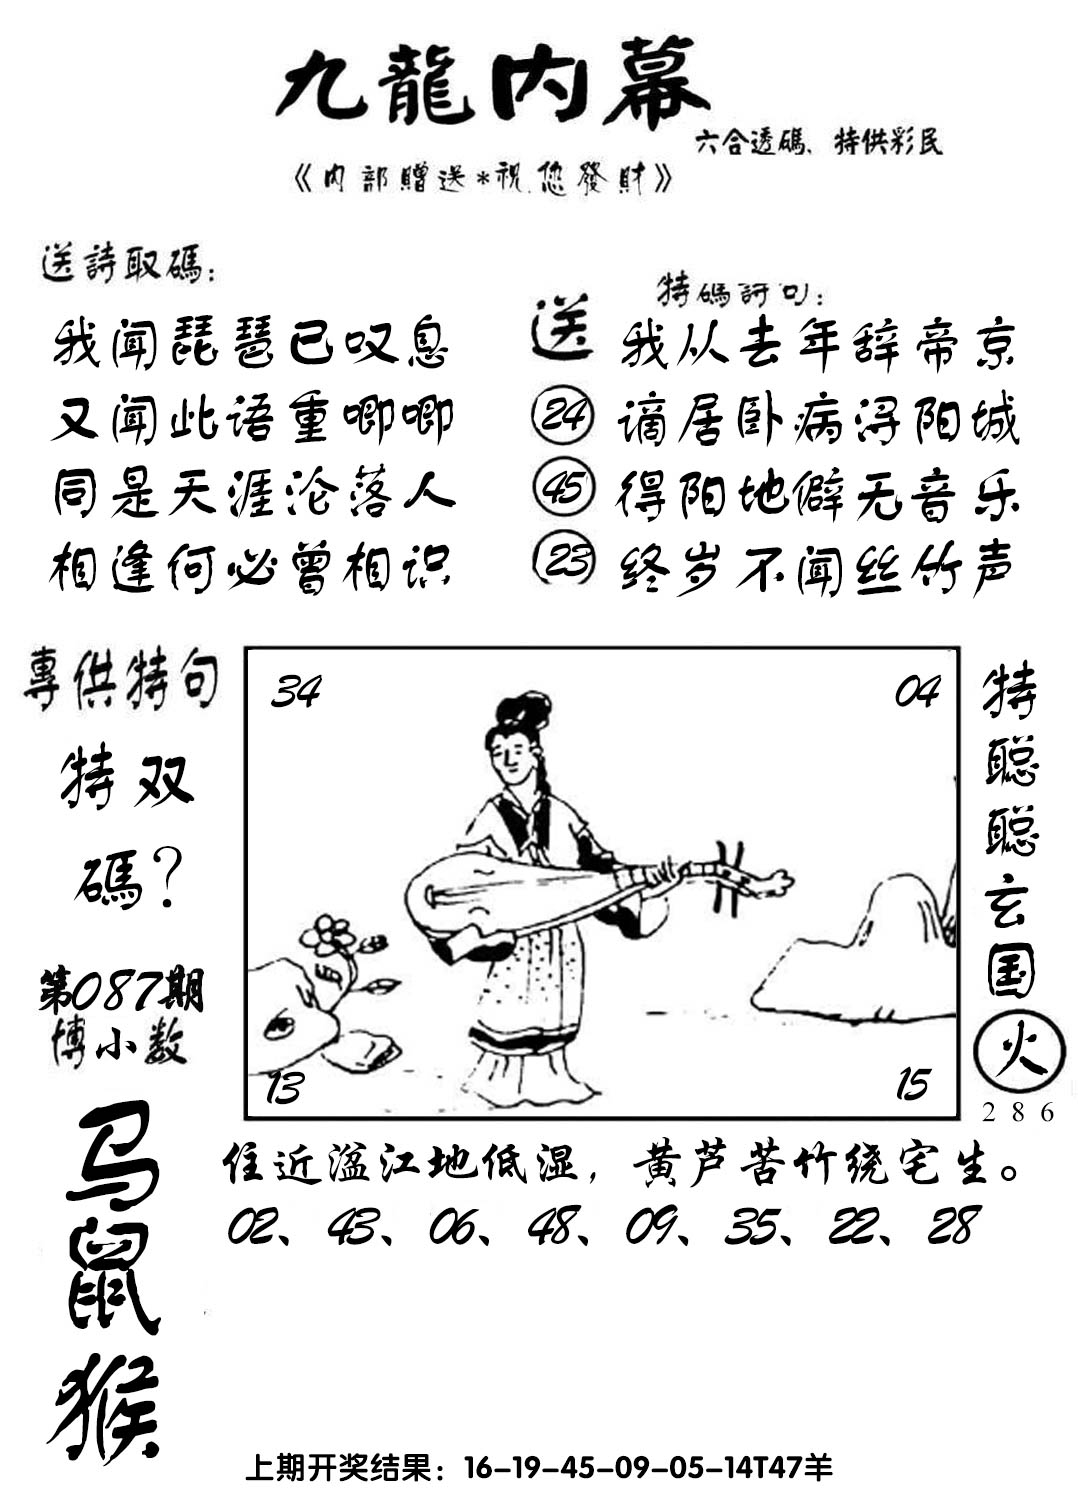 九龍内幕
六合透碼、特供彩民
《内部贈送*祝您發財》
送詩取碼：
我闻琵琶已叹息
又闻此语重唧唧
同是天涯沦落人
相逢何必曾相识
送
24
45
23
特碼詩句：
我从去年辞帝京
谪居卧病浔阳城
得阳地僻无音乐
终岁不闻丝竹声
專供特句
特双
碼？
第087期
博小数
马
鼠
猴
34
04
13
15
特聪聪玄国
火
286
住近湓江地低湿，黄芦苦竹绕宅生。
02、43、06、48、09、35、22、28
上期开奖结果：16-19-45-09-05-14T47羊